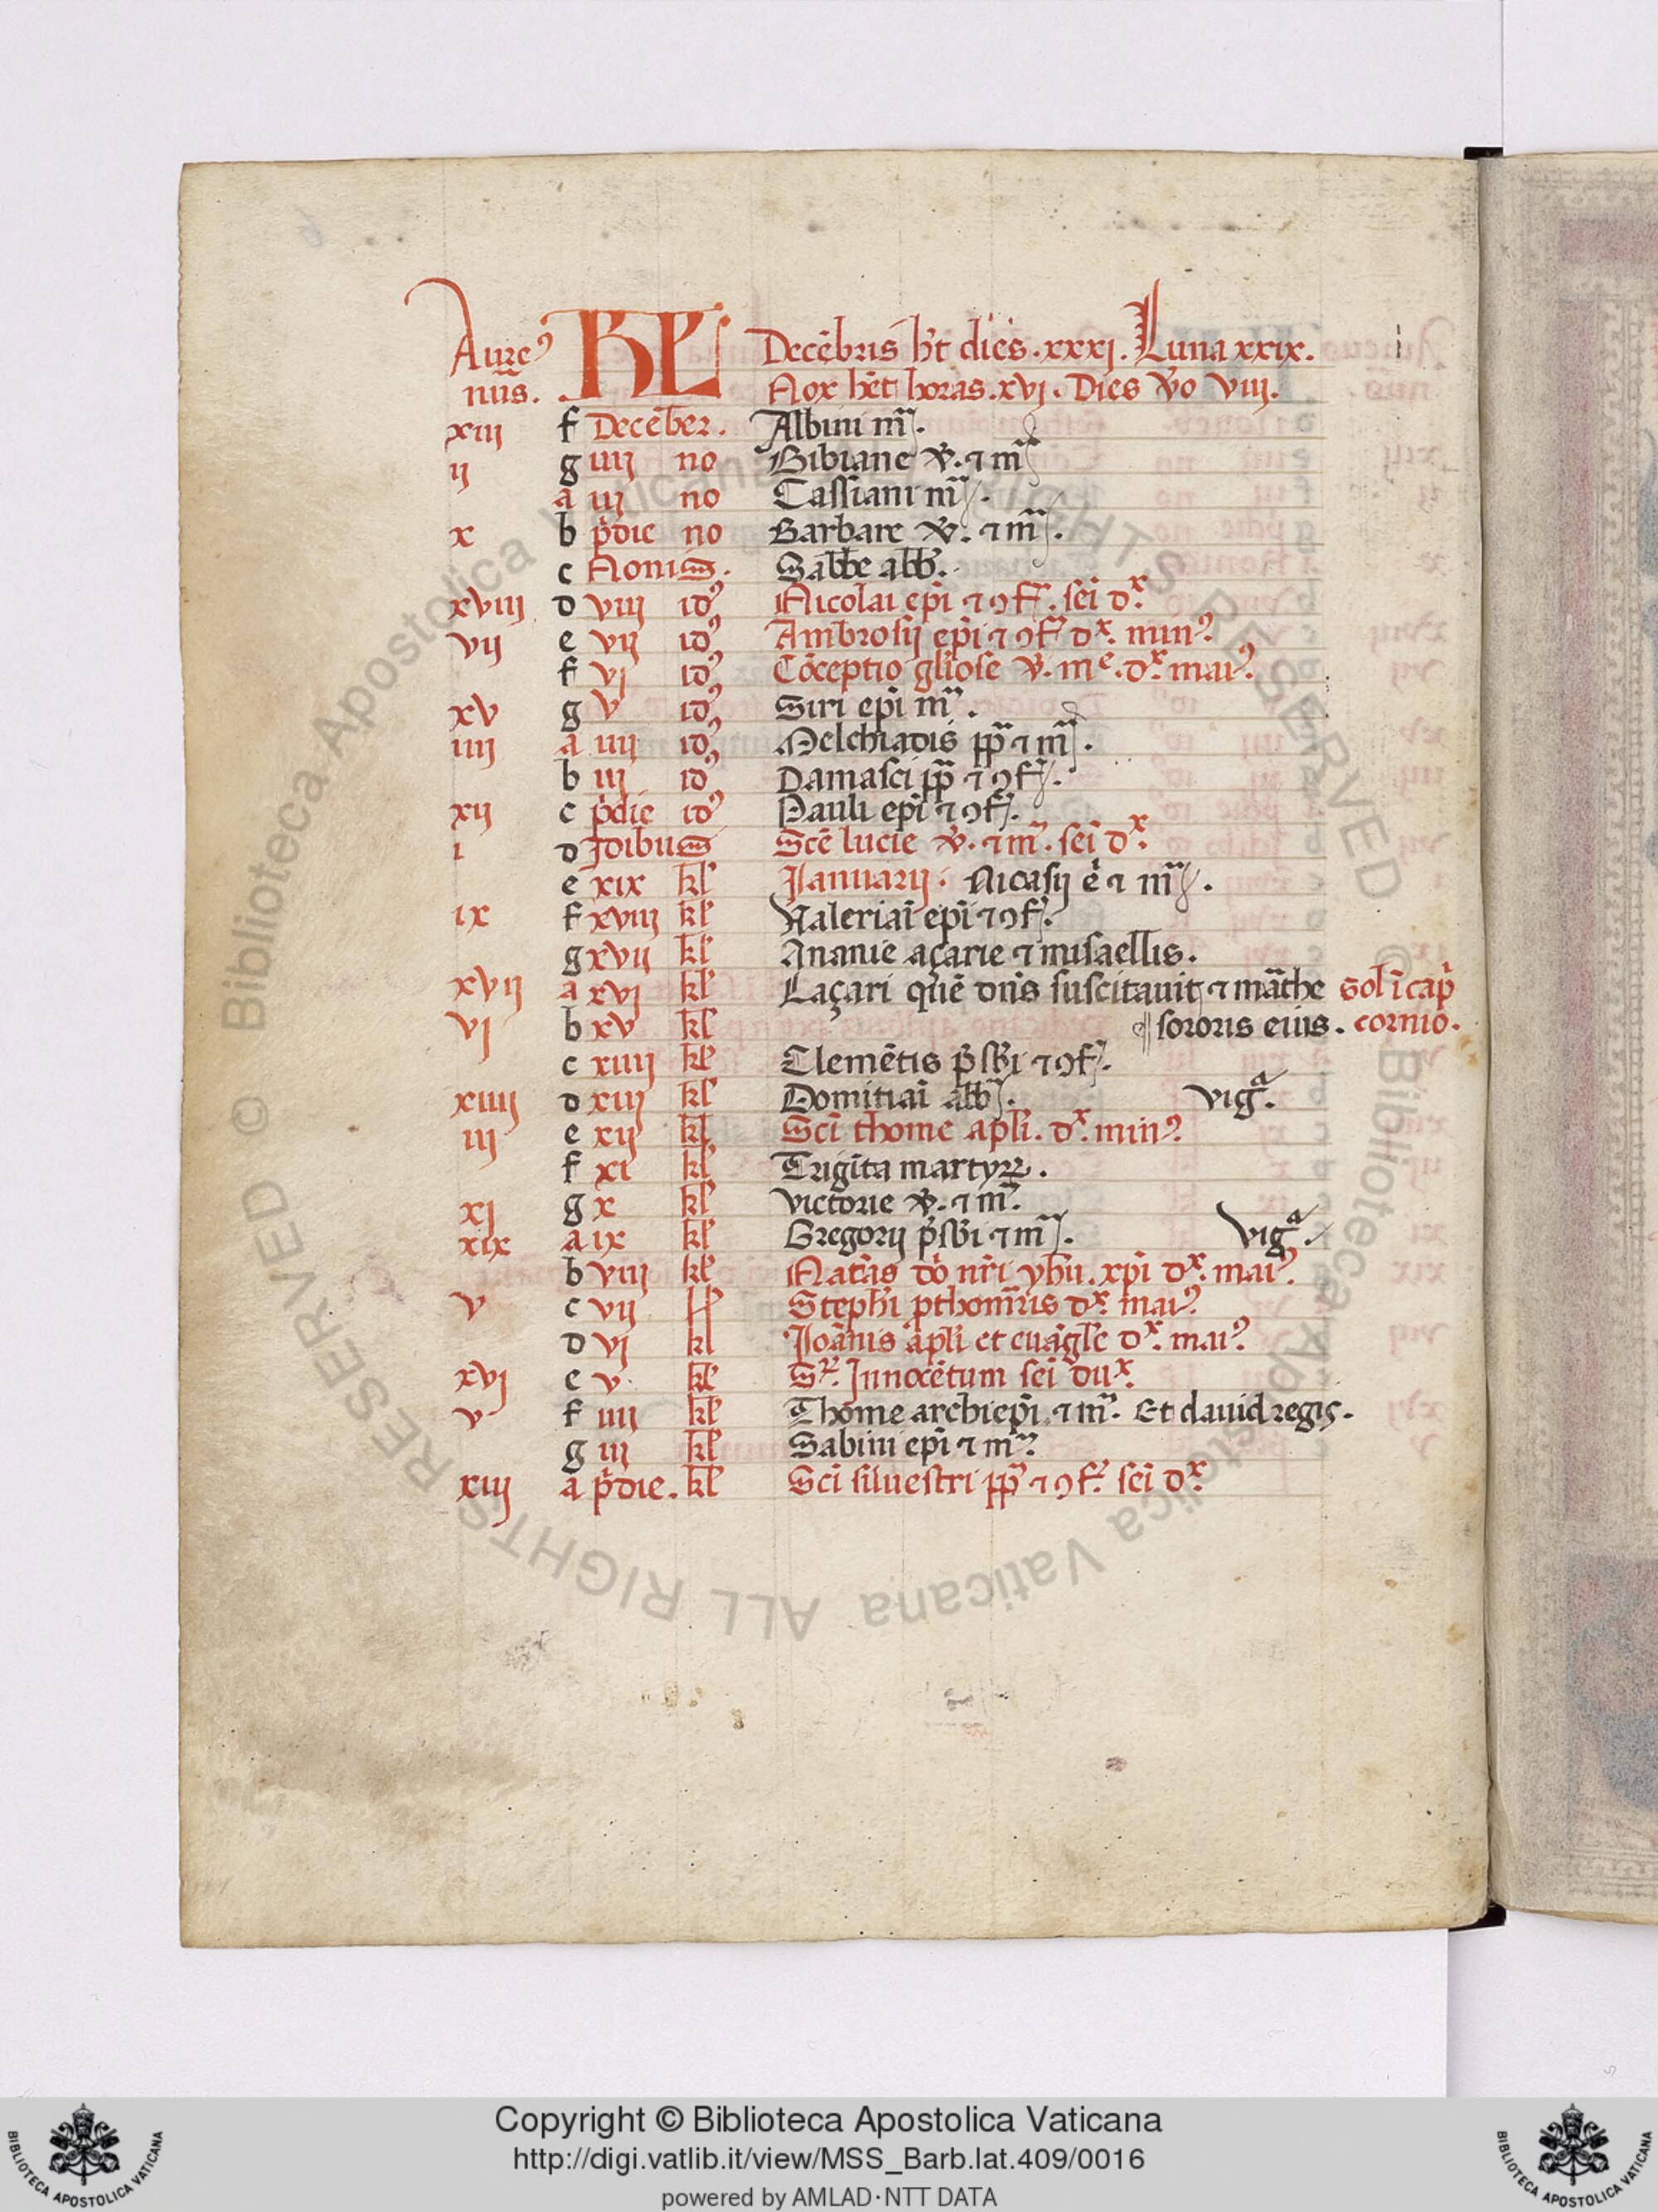 Aure⁹ KL Decēbris h̄t dies .xxxj. Luna xxix.
nūs. Nox hēt horas .xvj. Dies v̄o viij.
xiij f Decēber. Albini m̄.
ij g iiij no Bibiane v̄. ⁊ m̄
a iij no Cassiani m̄.
x b p̄die no Barbare v̄. ⁊ m̄.
c Nonis. Sabbe abb̄.
xviij d viij id⁹ Nicolai ep̄i ⁊ ꝯf. sēi dˣ.
vij e vij id⁹ Ambrosij ep̄i ⁊ ꝯf dˣ. min⁹.
f vj id⁹ Cōceptio gl̄iose v̄. mᵉ. dˣ mai⁹.
xv g v id⁹ Siri ep̄i m̄.
iiij a iiij id⁹ Melchiadis pp̄ ⁊ m̄.
b iij id⁹ Damasci pp̄ ⁊ ꝯf.
xij c p̄die id⁹ Pauli ep̄i ⁊ ꝯf.
i d Idibus Scē lucie v̄. ⁊ m̄. sēi dˣ.
e xix kl Ianuarij. Nicasij ē ⁊ m̄.
ix f xviij kl Valeriaī ep̄i ⁊ ꝯf.
g xvij kl Ananie açarie ⁊ misaellis.
xvij a xvj kl Laçari quē dn̄s suscitauit ⁊ māthe Sol ī cap̄
vj b xv kl sororis eius. cornio.
c xiiij kl Clemētis p̄sb̄i ⁊ ꝯf.
xiiij d xiij kl Domitiaī abb̄. vigᵃ.
iij e xij kl Scī thome apl̄i. dˣ. min⁹.
f xi kl Trigīta martyꝝ.
xj g x kl Victorie v̄. ⁊ m̄.
xix a ix kl Gregorij p̄sb̄i ⁊ m̄. Vigᵃ.
b viij kl Natāƨ dō nr̄i yhū. xp̄i dˣ. mai⁹.
v c vij kl Steph̄i pthom̄ris dˣ. mai⁹.
d vj kl Ioānis apl̄i et euāgl̄e dˣ. mai⁹.
xvj e v. kl Innocētum sēi duˣ.
v f iiij kl Thome archiep̄i. ⁊ m̄. Et dauid regis.
g iij kl Sabini ep̄i ⁊ m̄.
xiij a p̄die. kl Scī siluestri pp̄ ⁊ ꝯf. sēi dˣ
© Biblioteca Apostolica Vaticana ALL RIGHTS RESERVED
© Biblioteca Apostolica Vaticana ALL RIGHTS RESERVED
Copyright © Biblioteca Apostolica Vaticana
http://digi.vatlib.it/view/MSS_Barb.lat.409/0016
powered by AMLAD·NTT DATA
BIBLIOTECA APOSTOLICA VATICANA
BIBLIOTECA APOSTOLICA VATICANA